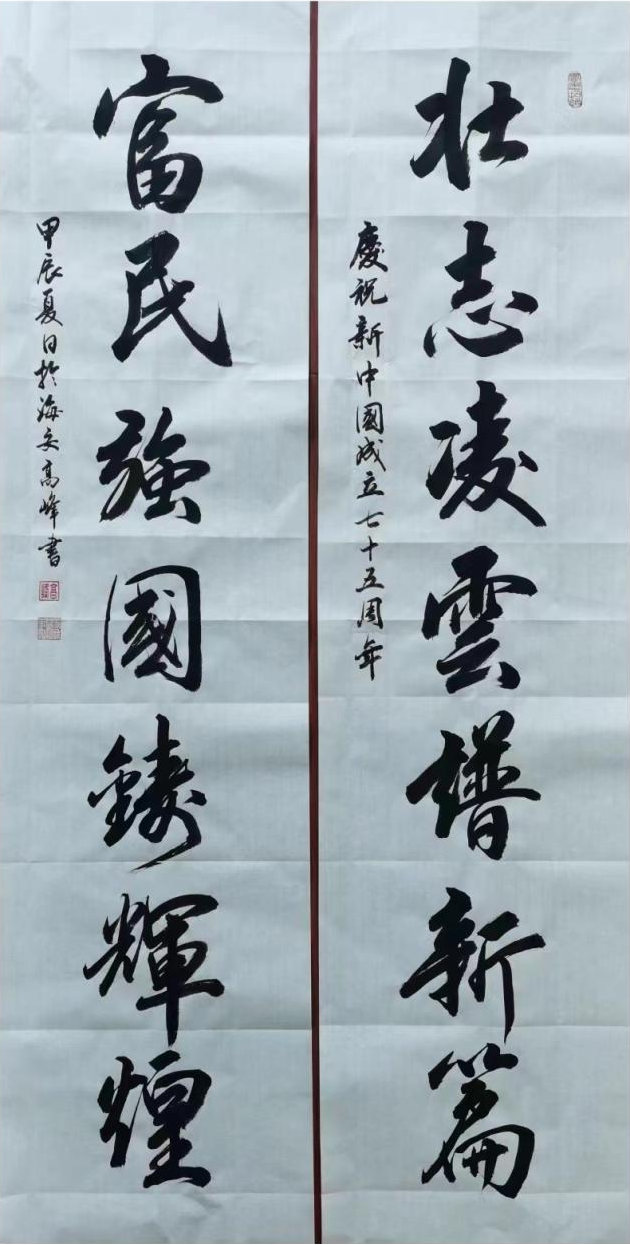 壮志凌雲譜新篇
慶祝新中國成立七十五周年
富民強國鑄輝煌
甲辰夏日於海安高峰書